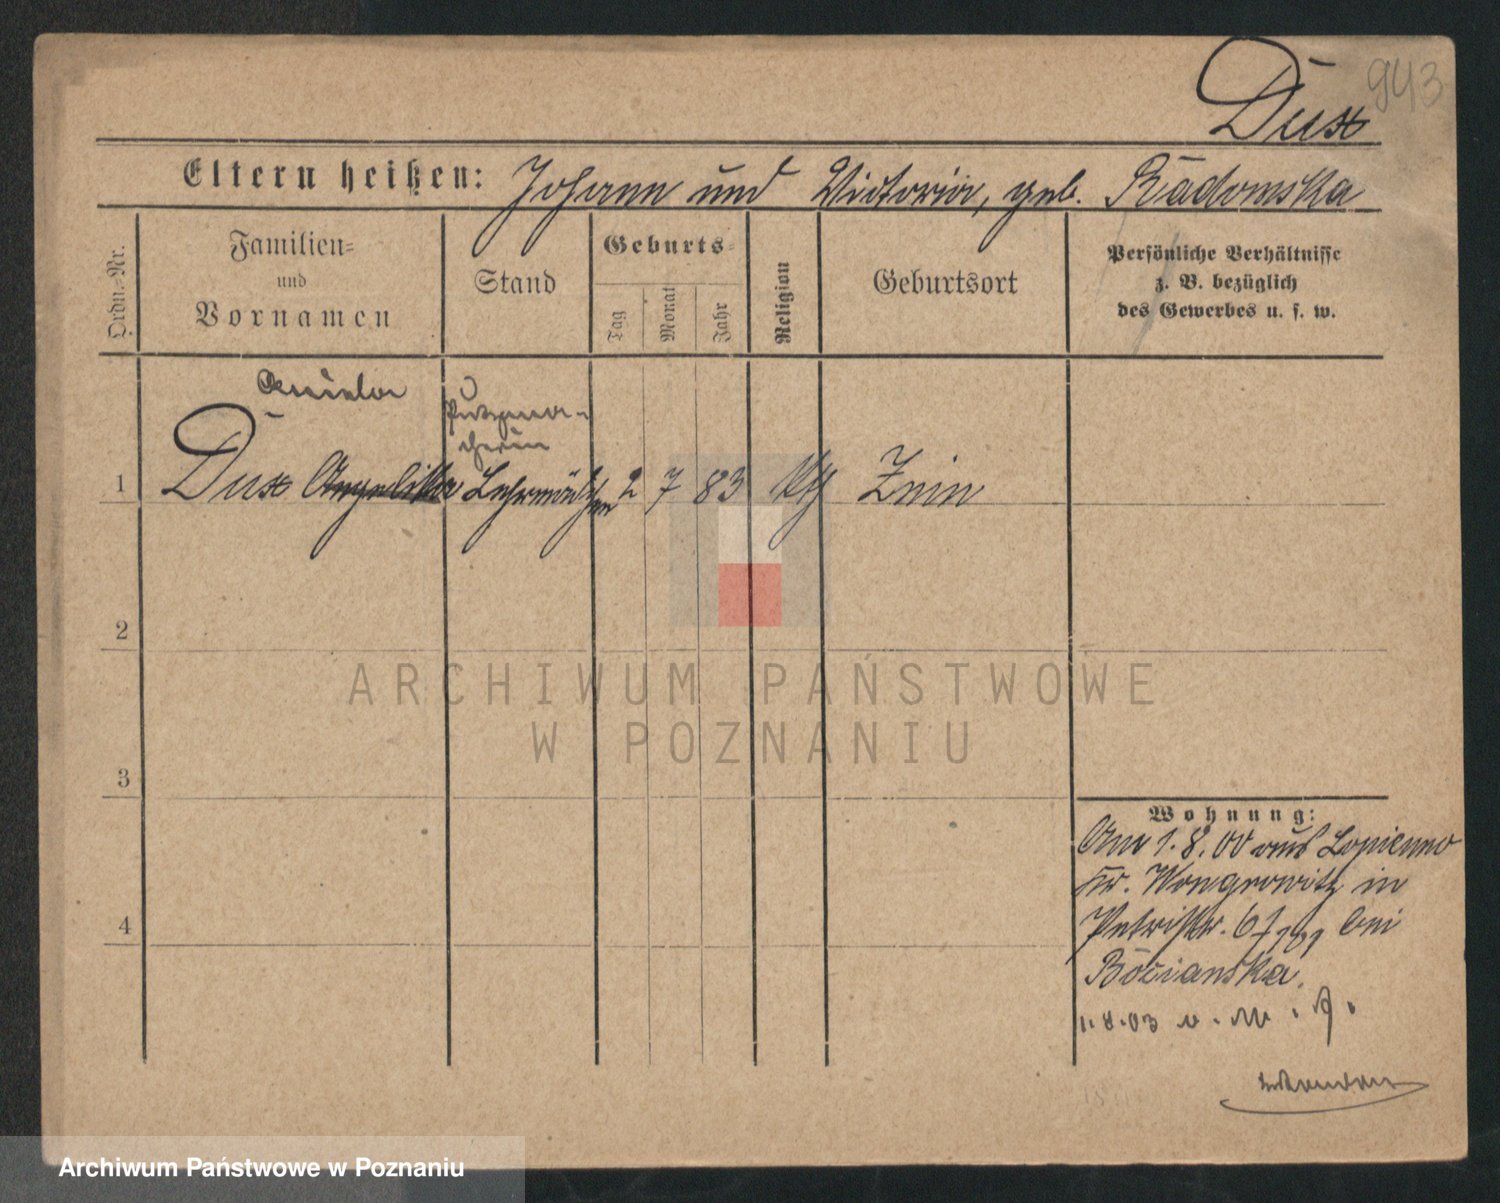 943
Dux
Eltern heißen: Johann und Victoria, geb. Radomska
Ordn.-Nr.
Familien=
und
Vornamen
Stand
Geburts=
Tag
Monat
Jahr
Religion
Geburtsort
Persönliche Verhältnisse
z. B. bezüglich
des Gewerbes u. s. w.
Aniela
Putzma-
cherin
1 Dux Angelika Lehrmädchen 2 7 83 kth Znin
2
3
4
Wohnung:
Am 1.8.00 aus Lopienno
Kr. Wongrowitz in
Petristr. 6 bei
Bocianska.
1.8.03
ARCHIWUM PAŃSTWOWE
W POZNANIU
Archiwum Państwowe w Poznaniu